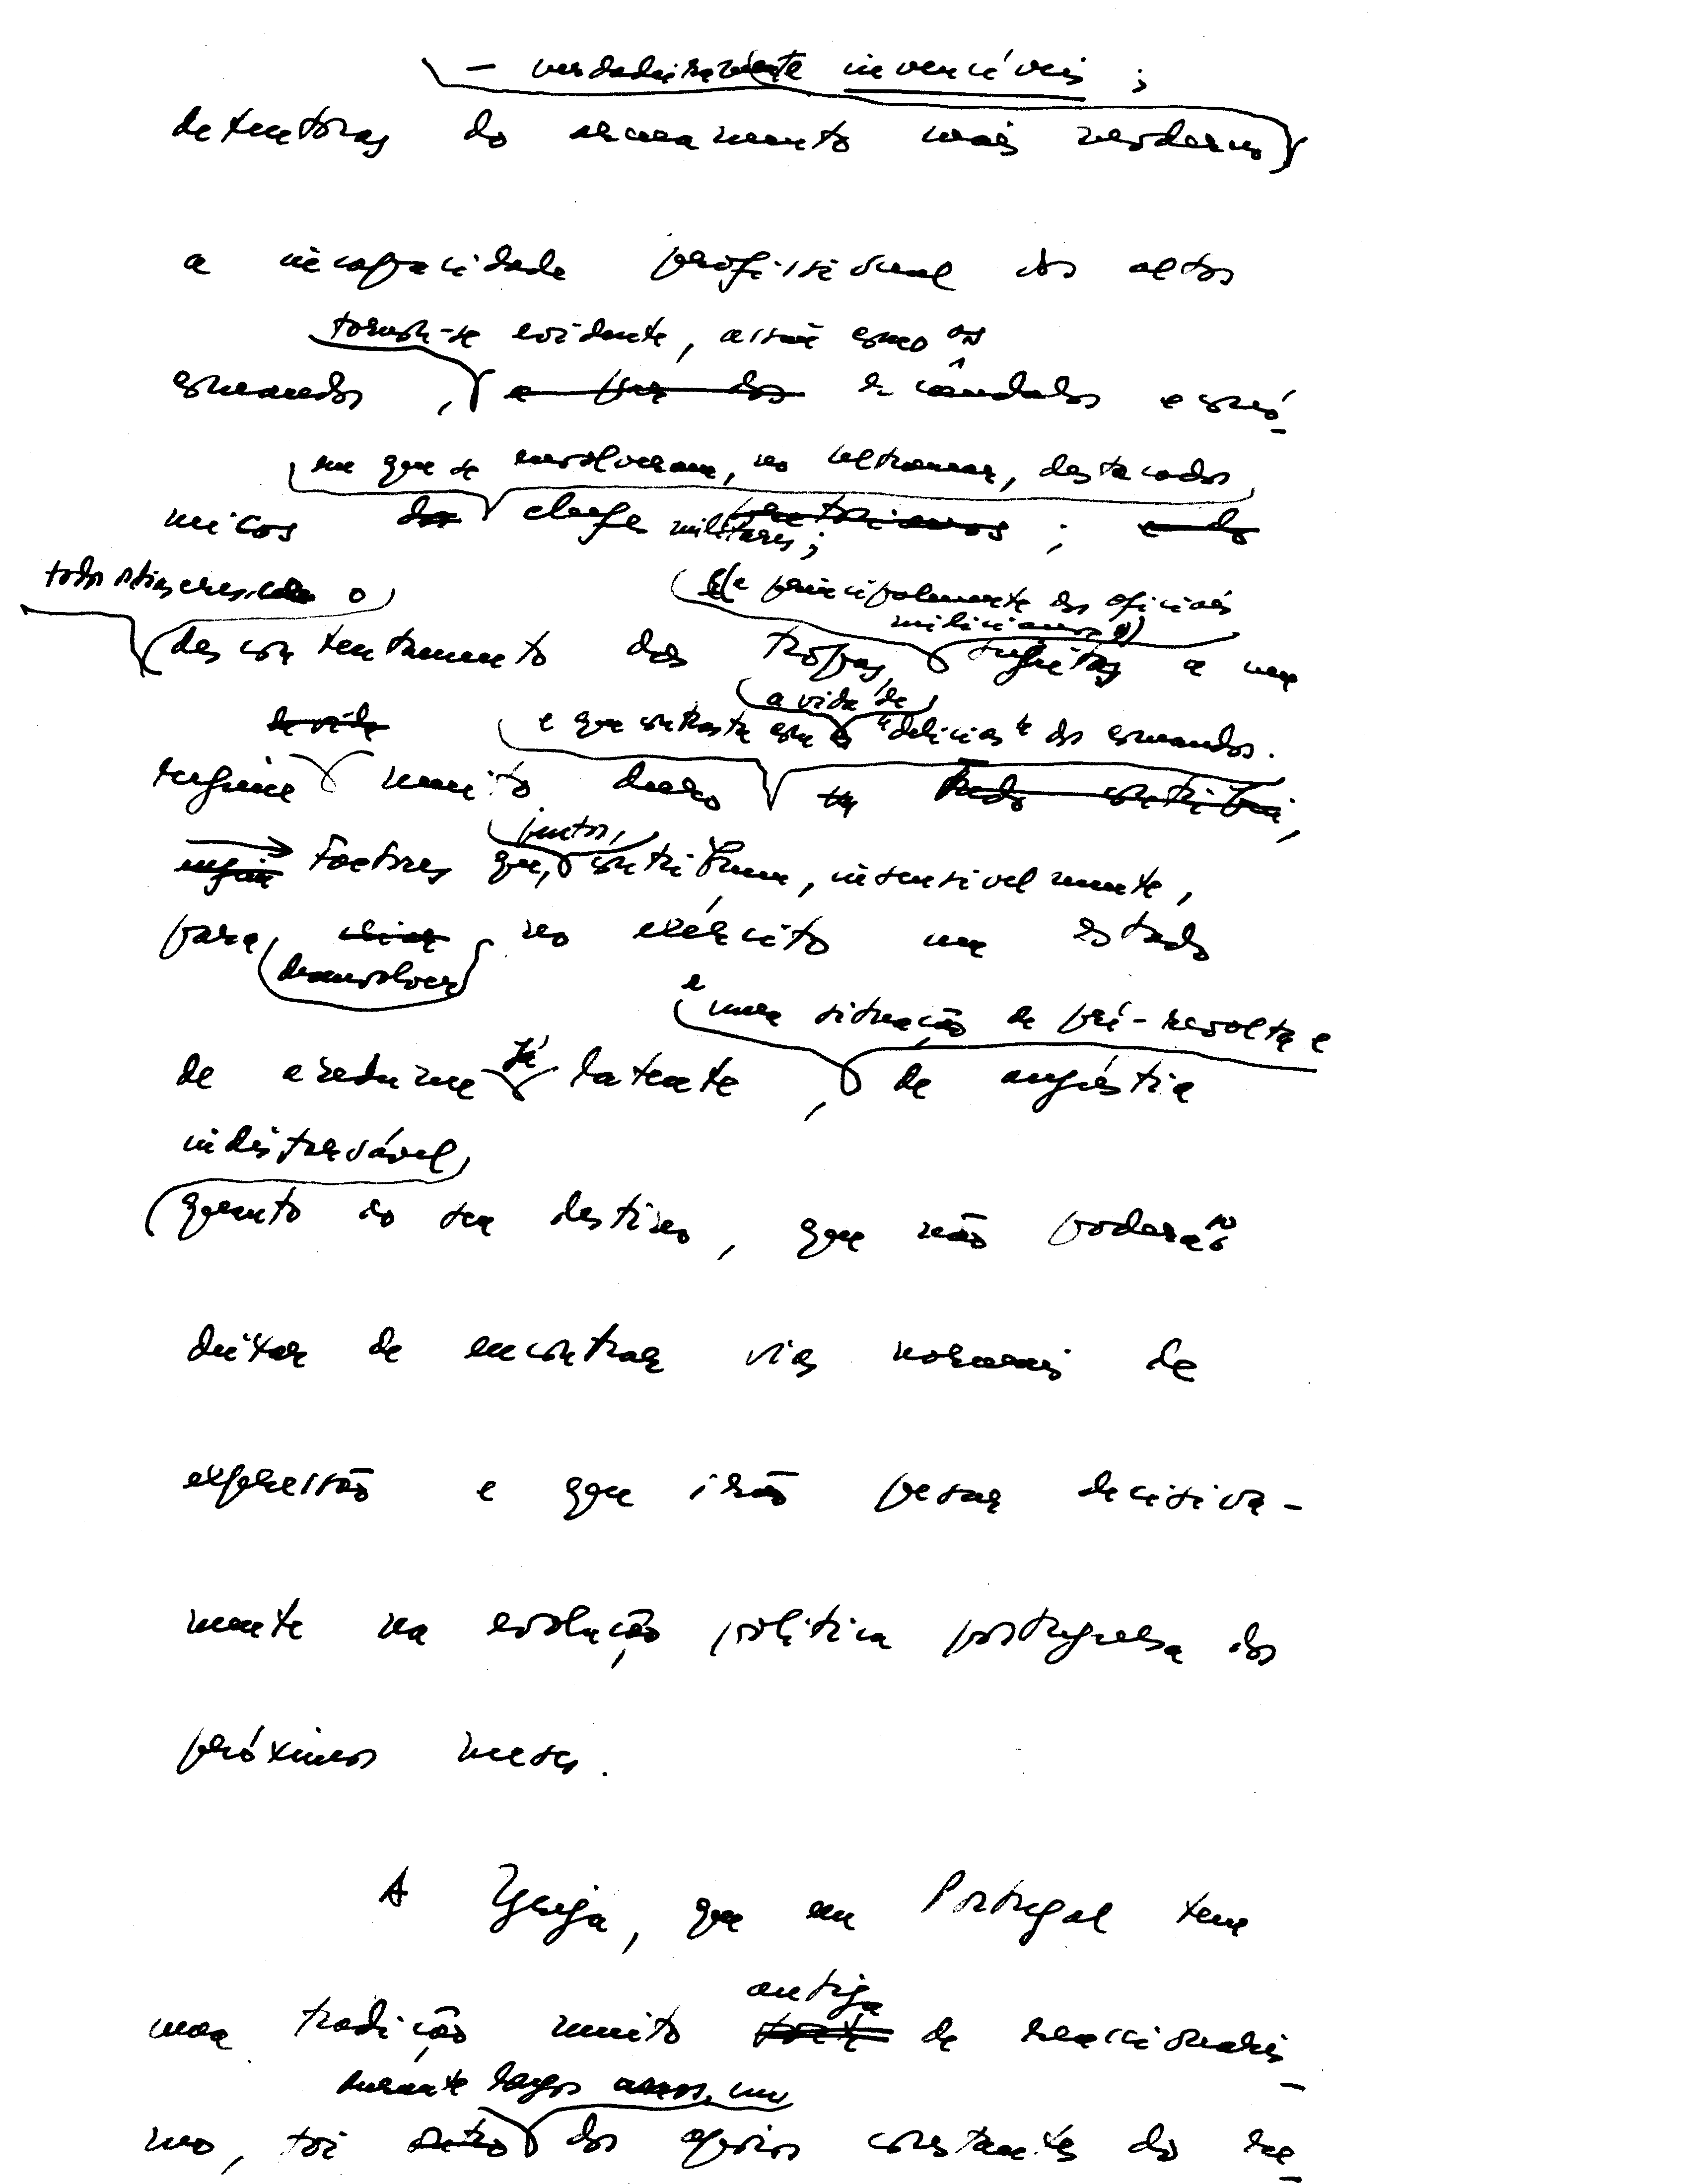 – verdadeiramente invencíveis ;
detentoras do armamento mais moderno
a incapacidade profissional dos altos
tornou-se evidente, assim como os
comandos , a par dos escândalos econó-
em que se envolveram, no ultramar, destacados
micos dos chefes militares; pretorianos ; e do
todos os dias cresce o
(e principalmente dos oficiais
milicianos)
descontentamento das tropas, sujeitas a um
a vida de
de vida
e que contrasta com as "delícias" dos comandos.
regime muito duro Tudo contribui,
juntos,
factores que, contribuem, insensivelmente,
para criar no exército um estado
desenvolver
e uma situação de pré-revolta e
de azedume já latente , de angústia
indisfarsável,
quanto ao seu destino, que não poderão
deixar de encontrar vias normais de
expressão e que irão pesar decisiva-
mente na evolução política portuguesa dos
próximos meses.
A Igreja, que em Portugal tem
antiga
uma tradição muito forte de reaccionaris-
durante largos anos, um
mo, foi outro dos apoios constantes do re-